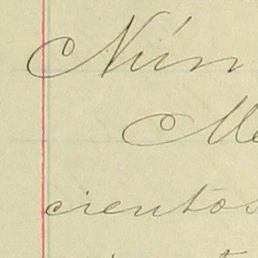 Núm
Me
cientos